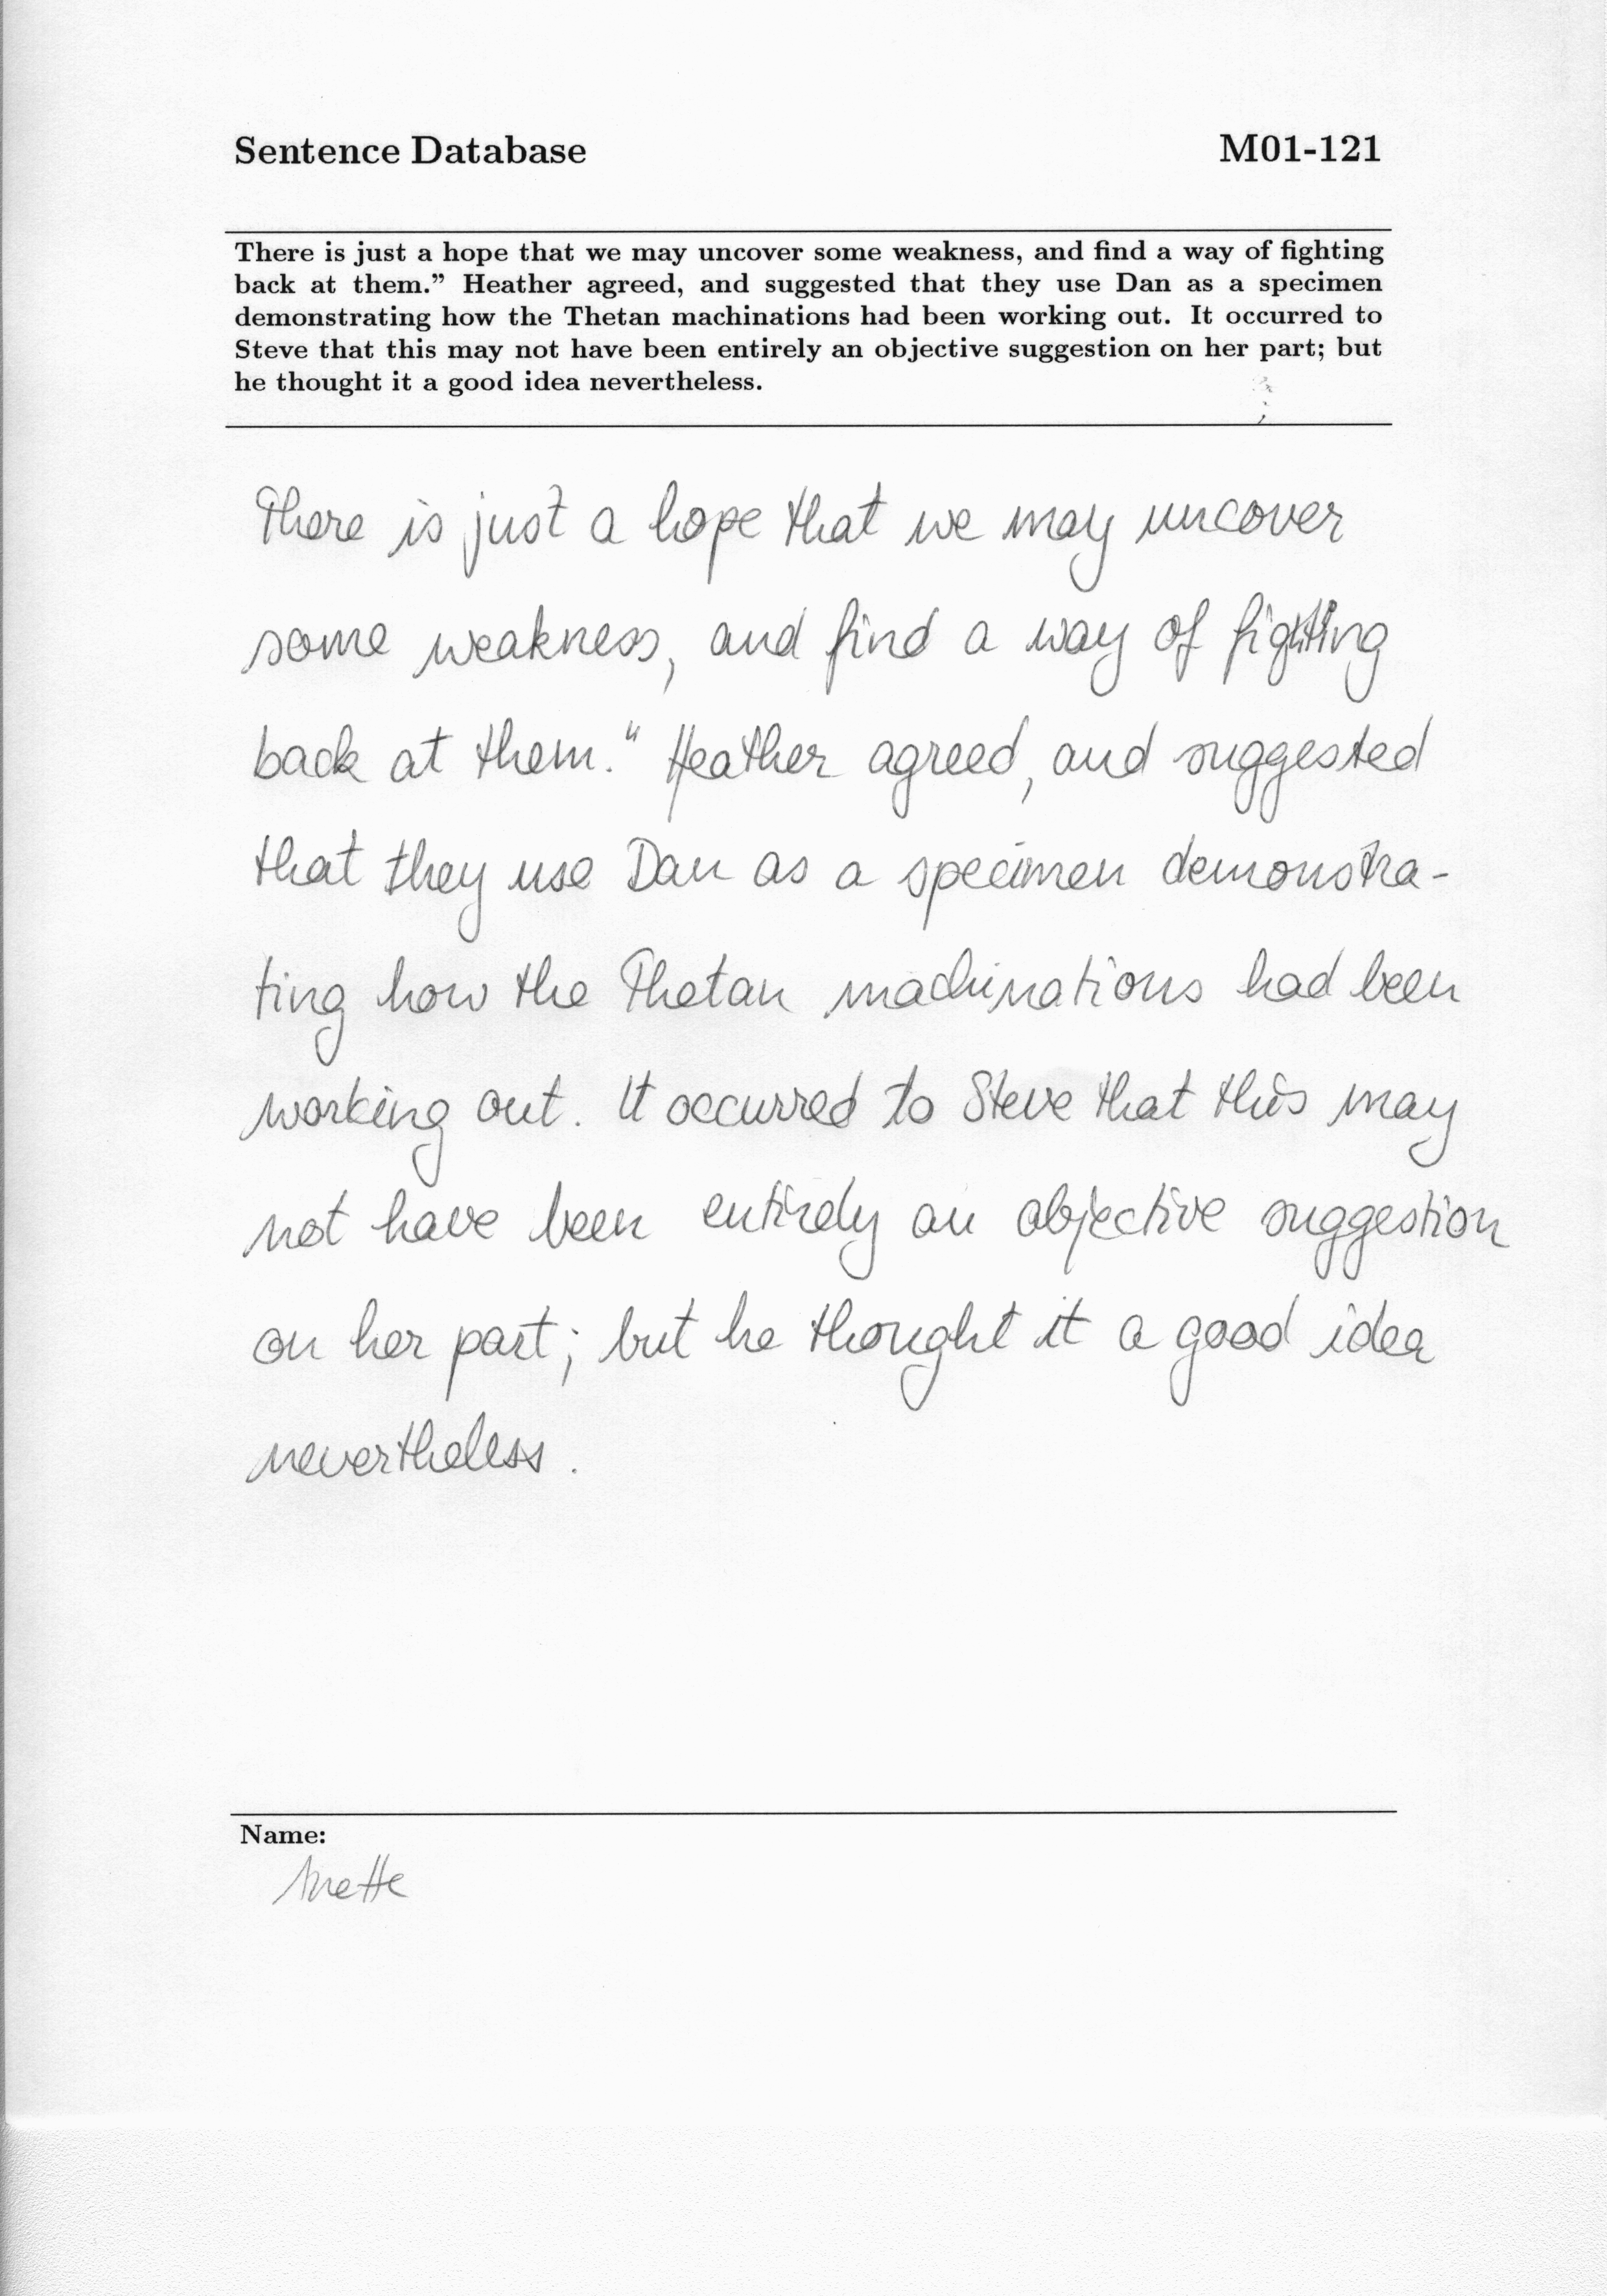 Sentence Database M01-121
There is just a hope that we may uncover some weakness, and find a way of fighting
back at them.” Heather agreed, and suggested that they use Dan as a specimen
demonstrating how the Thetan machinations had been working out. It occurred to
Steve that this may not have been entirely an objective suggestion on her part; but
he thought it a good idea nevertheless.
There is just a hope that we may uncover
some weakness, and find a way of fighting
back at them." Heather agreed, and suggested
that they use Dan as a specimen demonstra-
ting how the Thetan machinations had been
working out. It occurred to Steve that this may
not have been entirely an objective suggestion
on her part; but he thought it a good idea
nevertheless.
Name:
Anette